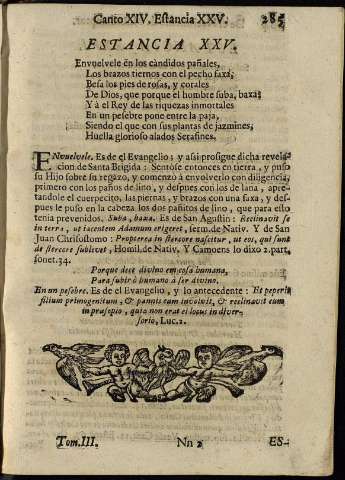 Canto XIV. Estancia XXV. 285
ESTANCIA XXV.
Envuelvele en los candidos pañales,
Los brazos tiernos con el pecho faxa;
Besa los pies de rosas, y corales
De Dios, que porque el hombre suba, baxa;
Y à el Rey de las riquezas inmortales
En un pesebre pone entre la paja,
Siendo el que con sus plantas de jazmines,
Huella glorioso alados Serafines.
ENvuelvele. Es de el Evangelio; y asi prosigue dicha revela-
cion de Santa Brigida: Sentóse entonces en tierra, y puso
su Hijo sobre su regazo, y comenzó à envolverlo con diligencia,
primero con los paños de lino, y despues con los de lana, apre-
tandole el cuerpecito, las piernas, y brazos con una faxa, y des-
pues le puso en la cabeza los dos pañitos de lino, que para esto
tenia prevenidos. Suba, baxa. Es de San Agustin: Reclinavit se
in terra, ut iacentem Adamum erigeret, serm. de Nativ. Y de San
Juan Chrisostomo: Propterea in stercore nascitur, ut eos, qui sunt
de stercore sublevet, Homil. de Nativ. Y Camoens lo dixo 2. part.
sonet. 34.
Porque dece divino em cosa humana,
Para subir ò humano à ser divino.
En un pesebre. Es de el Evangelio, y lo antecedente: Et peperit
filium primogenitum, & pannis eum involvit, & reclinavit eum
in præsepio, quia non erat ei locus in diver-
sorio, Luc. 2.
Tom. III. Nn 2 ES-